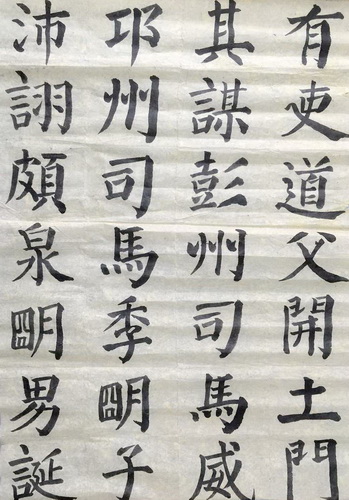 有吏道父開土門
其謀彭州司馬威
邛州司馬季明子
沛詡頗泉明男誕